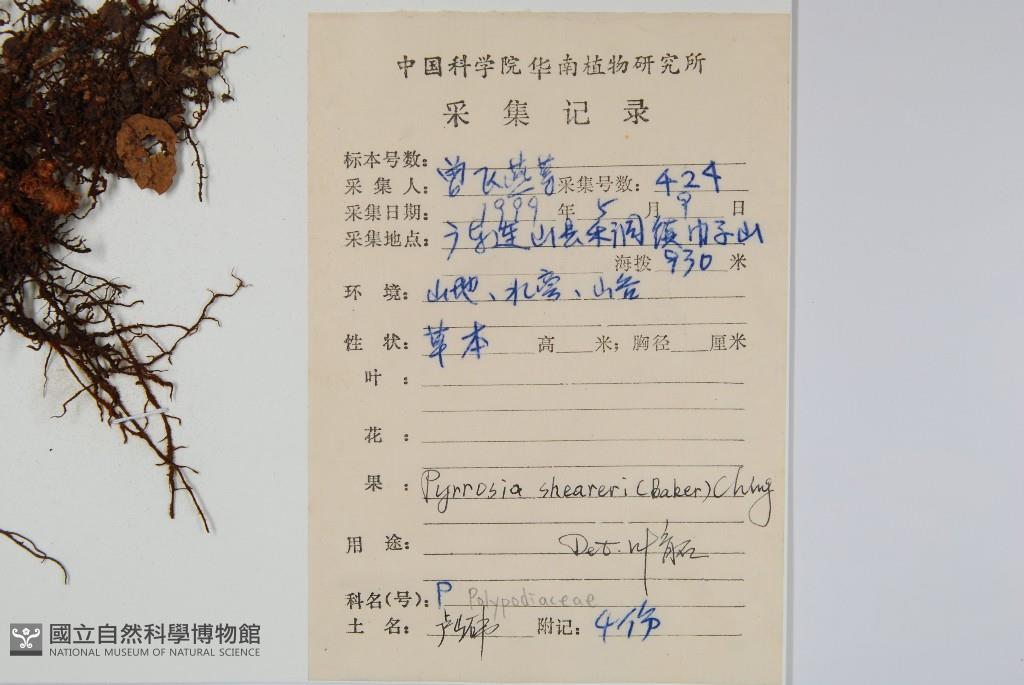 中国科学院华南植物研究所
采集记录
标本号数:
采集人: 曾飞燕等 采集号数: 424
采集日期: 1999 年 5 月 9 日
采集地点: 广东连山县禾洞镇巾子山
海拨 930 米
环境: 山地、水旁、山谷
性状: 草本 高 米; 胸径 厘米
叶:
花:
果: Pyrrosia sheareri (Baker) Ching
用途: Det. 叶
科名(号): P Polypodiaceae
土名: 附记: 4份
國立自然科學博物館
NATIONAL MUSEUM OF NATURAL SCIENCE